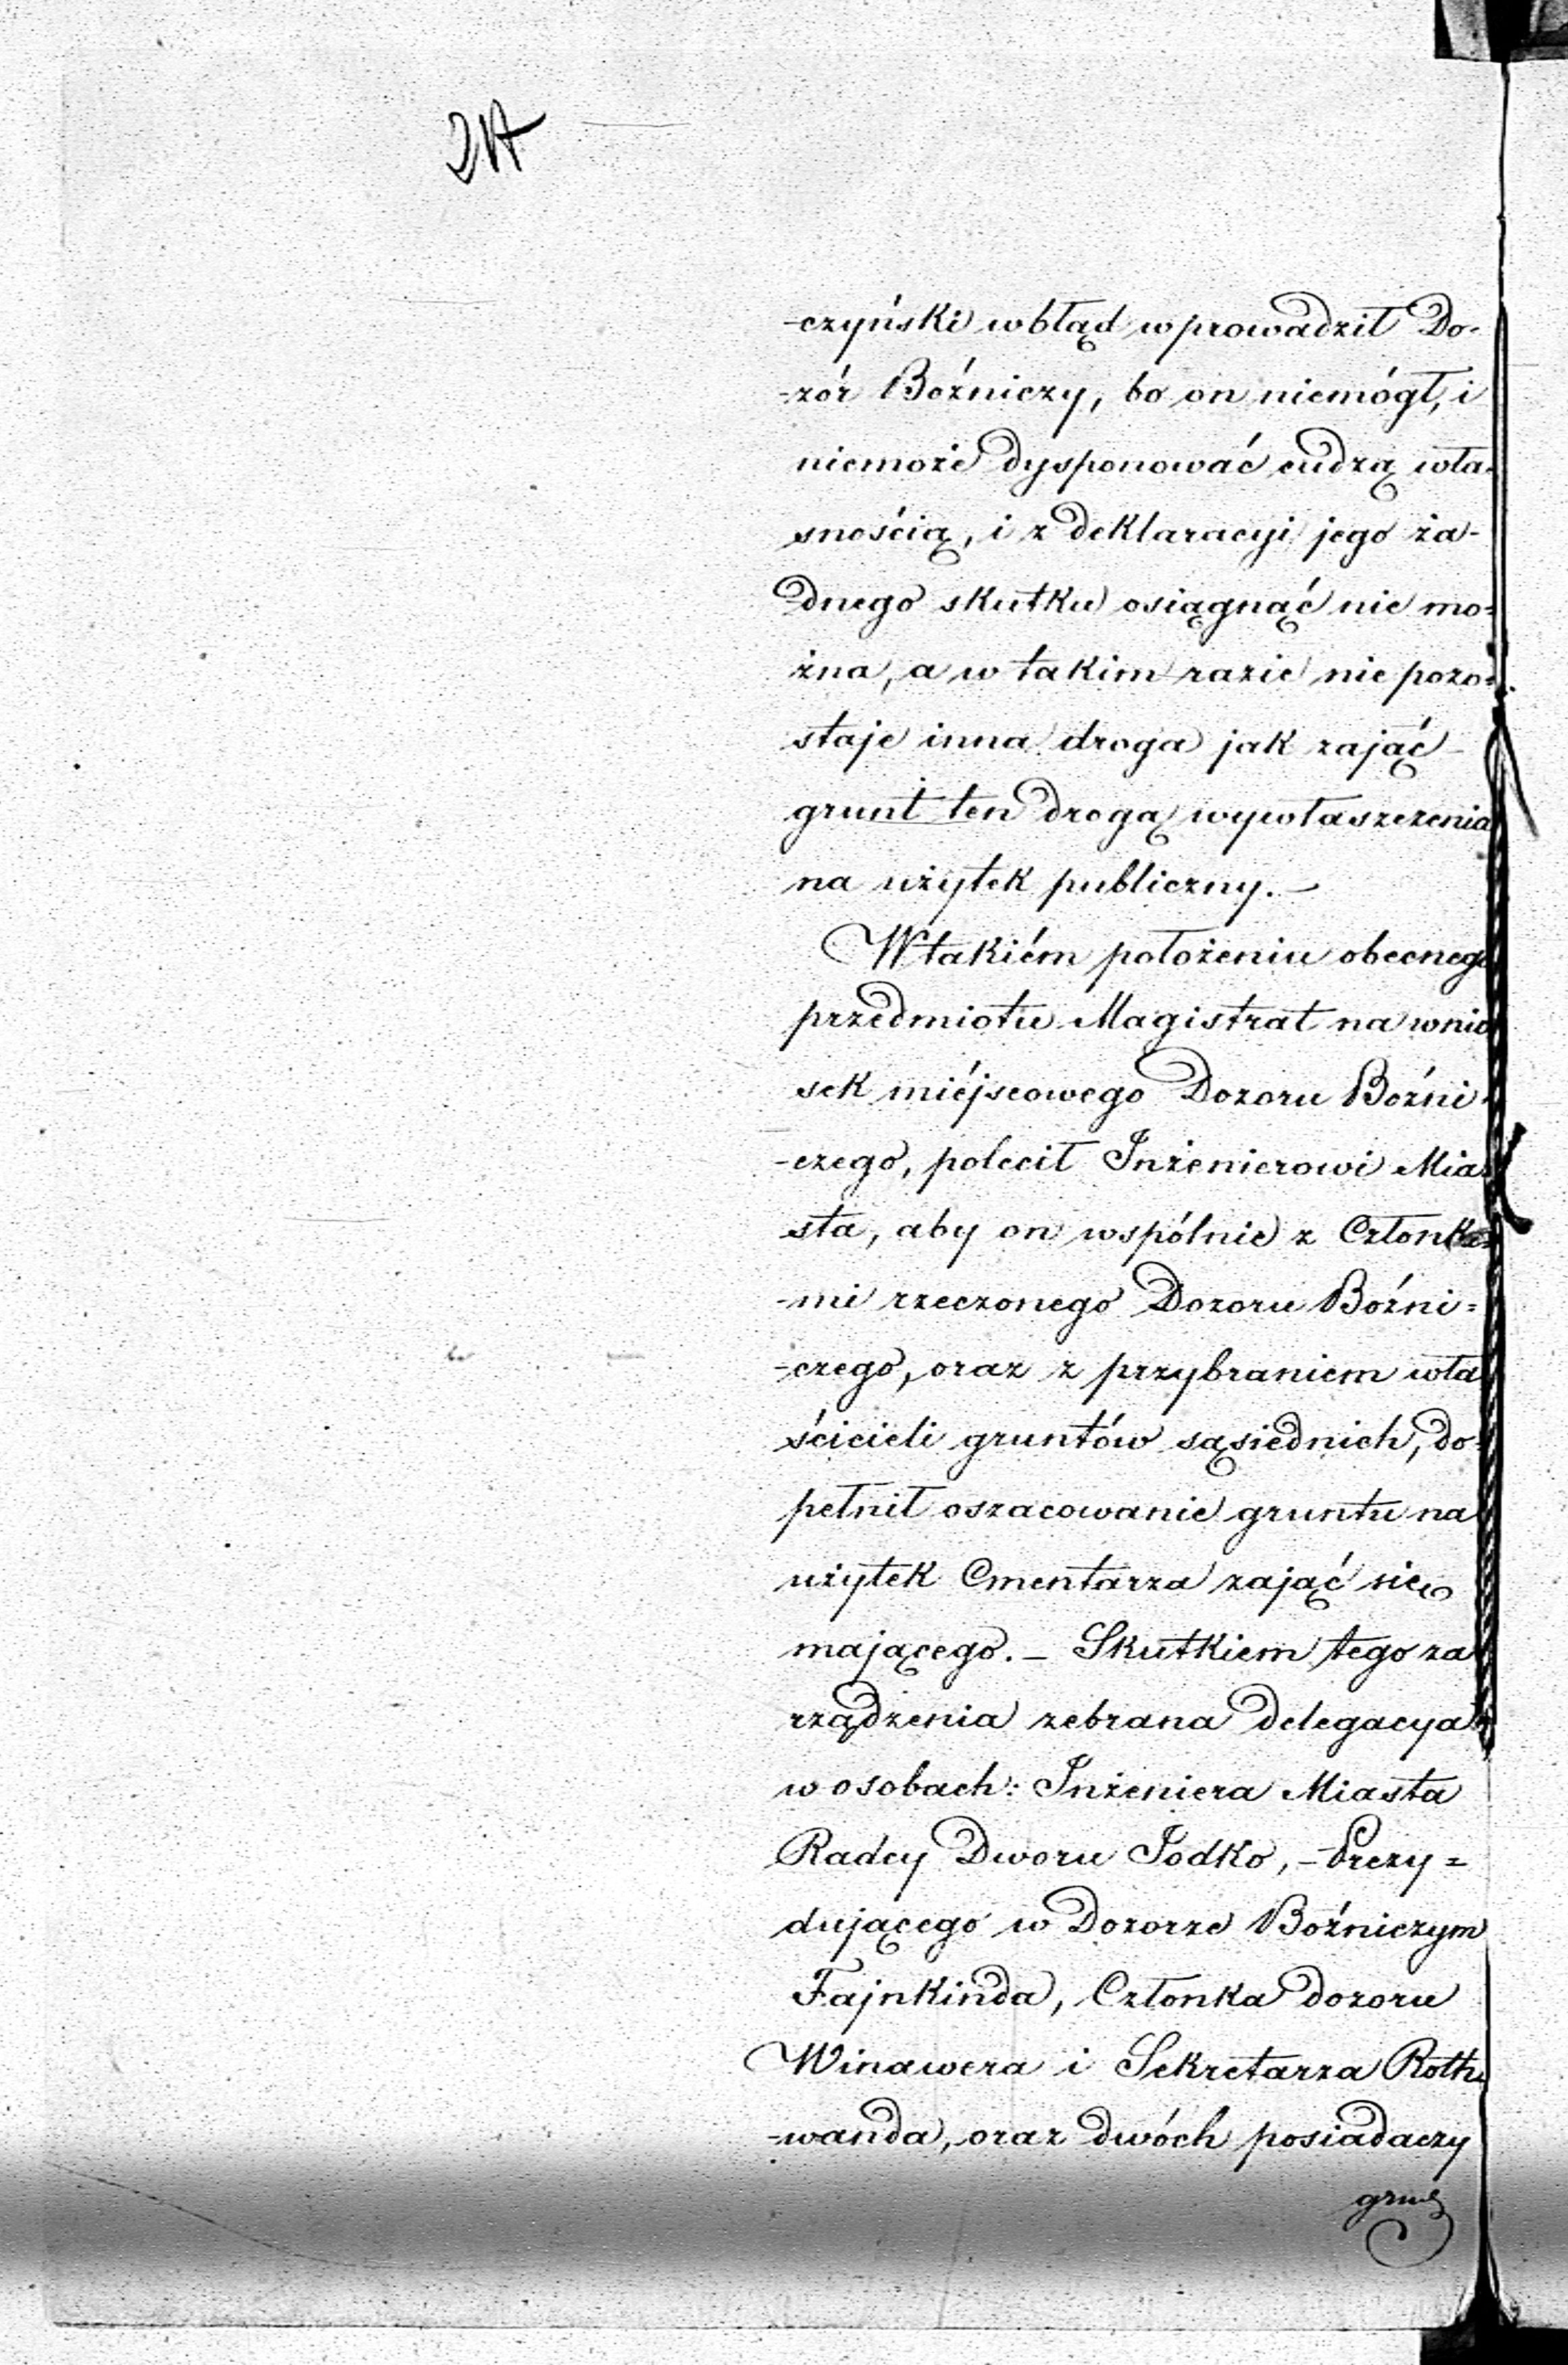 -czyński w błąd wprowadził Do-
-zór Bożniczy, bo on niemógł, i
niemoże dysponować cudzą wła-
snością, i z deklaracyi jego ża-
dnego skutku osiągnąć nie mo-
żna, a w takim razie nie pozo-
staje inna droga jak zająć
grunt ten drogą wywłaszczenia
na użytek publiczny. —
W takiém położeniu obecnego
przedmiotu Magistrat na wnio
sek miéjscowego Dozoru Bożni-
-czego, polecił Inżenierowi Mia-
sta, aby on wspólnie z Członka-
-mi rzeczonego Dozoru Bożni=
-czego, oraz z przybraniem wła
ścicieli gruntów sąsiednich, do-
pełnił oszacowanie gruntu na
użytek Cmentarza zająć się
mającego. — Skutkiem tego za
rządzenia zebrana delegacya
w osobach: Inżeniera Miasta
Radcy Dworu Jodko, — Prezy=
dującego w Dozorze Bożniczym
Fajnkinda, Członka dozoru
Winawera i Sekretarza Roth-
-wanda, oraz dwóch posiadaczy